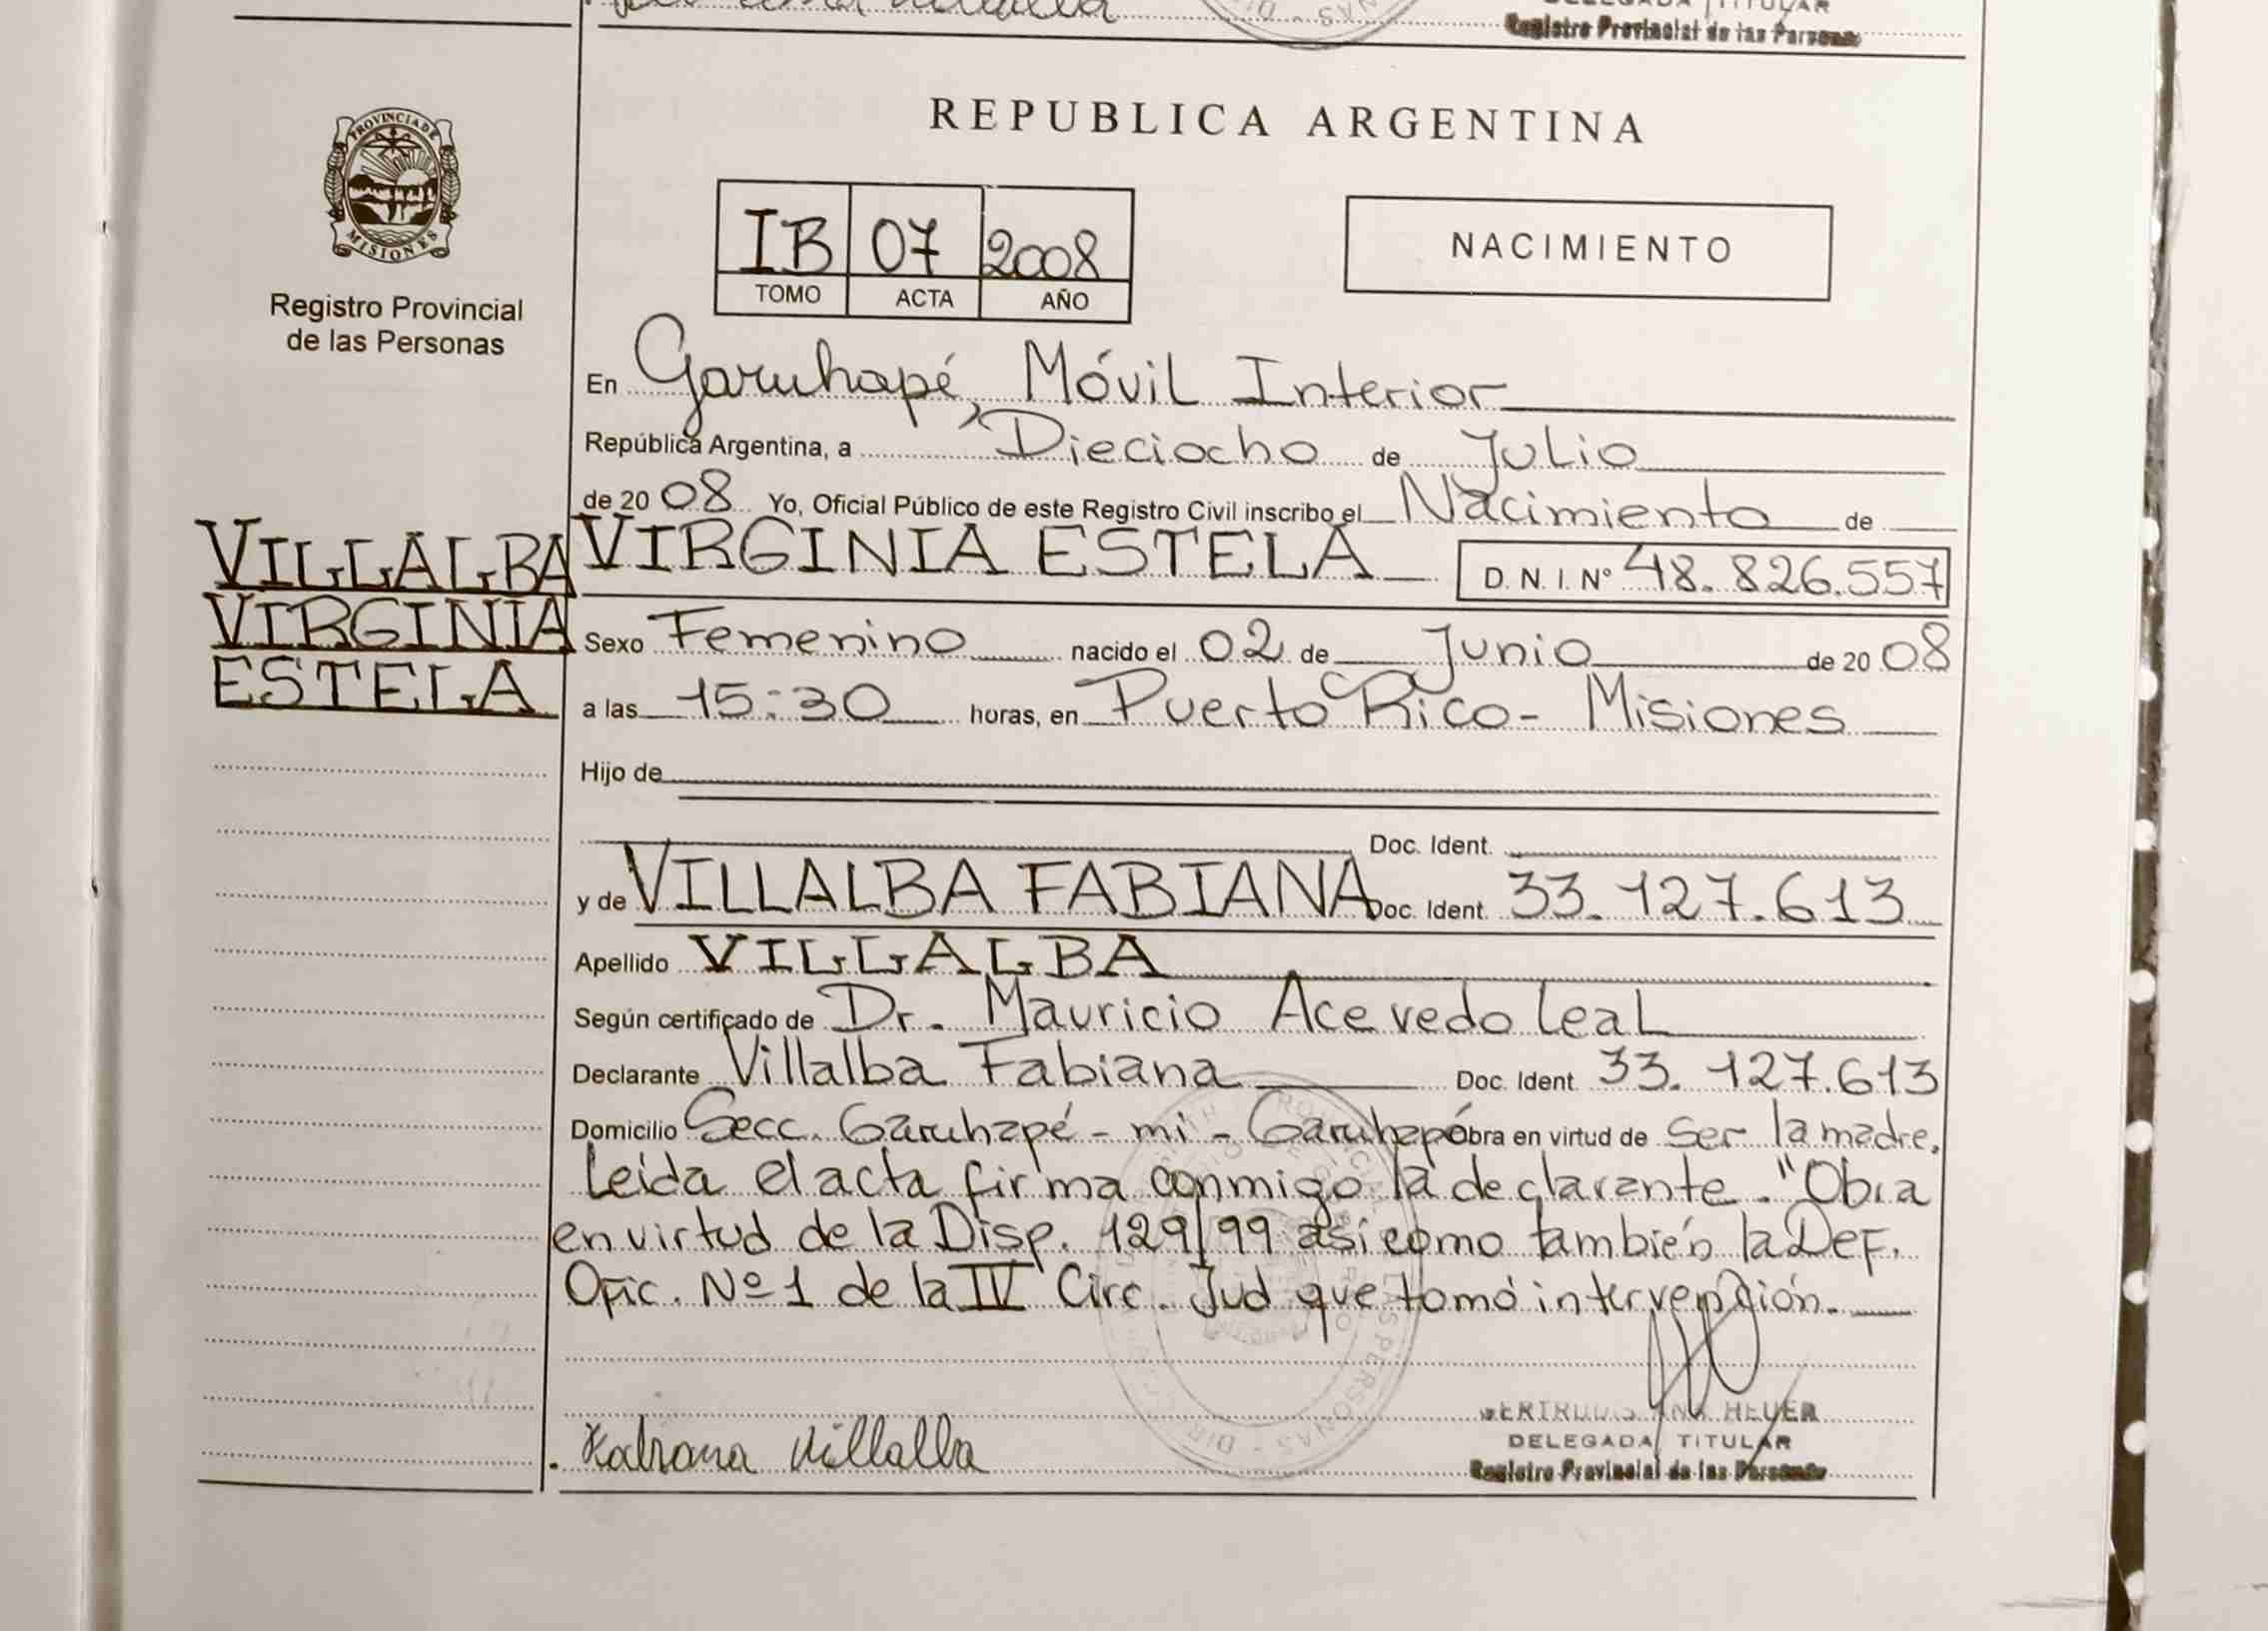 Registro Provincial de las Personas
REPUBLICA ARGENTINA
PROVINCIA DE
MISIONES
Registro Provincial
de las Personas
IB 07 2008
TOMO ACTA AÑO
NACIMIENTO
En Garuhapé, Móvil Interior
República Argentina, a Dieciocho de Julio
de 20 08 Yo, Oficial Público de este Registro Civil inscribo el Nacimiento de
VILLALBA
VIRGINIA
ESTELA
VIRGINIA ESTELA D. N. I. Nº 48.826.557
Sexo Femenino nacido el 02 de Junio de 20 08
a las 15:30 horas, en Puerto Rico - Misiones
Hijo de
Doc. Ident.
y de VILLALBA FABIANA Doc. Ident. 33.127.613
Apellido VILLALBA
Según certificado de Dr. Mauricio Acevedo Leal
Declarante Villalba Fabiana Doc. Ident. 33.127.613
Domicilio Secc. Garuhapé - mi - Garuhapé Obra en virtud de ser la madre.
Leida el acta firma conmigo la declarante. "Obra
en virtud de la Disp. 129/99 así como también la Def.
Ofic. Nº 1 de la IV Circ. Jud que tomó intervención.
Fabiana Villalba
ANA HEUER
DELEGADA TITULAR
Registro Provincial de las Personas